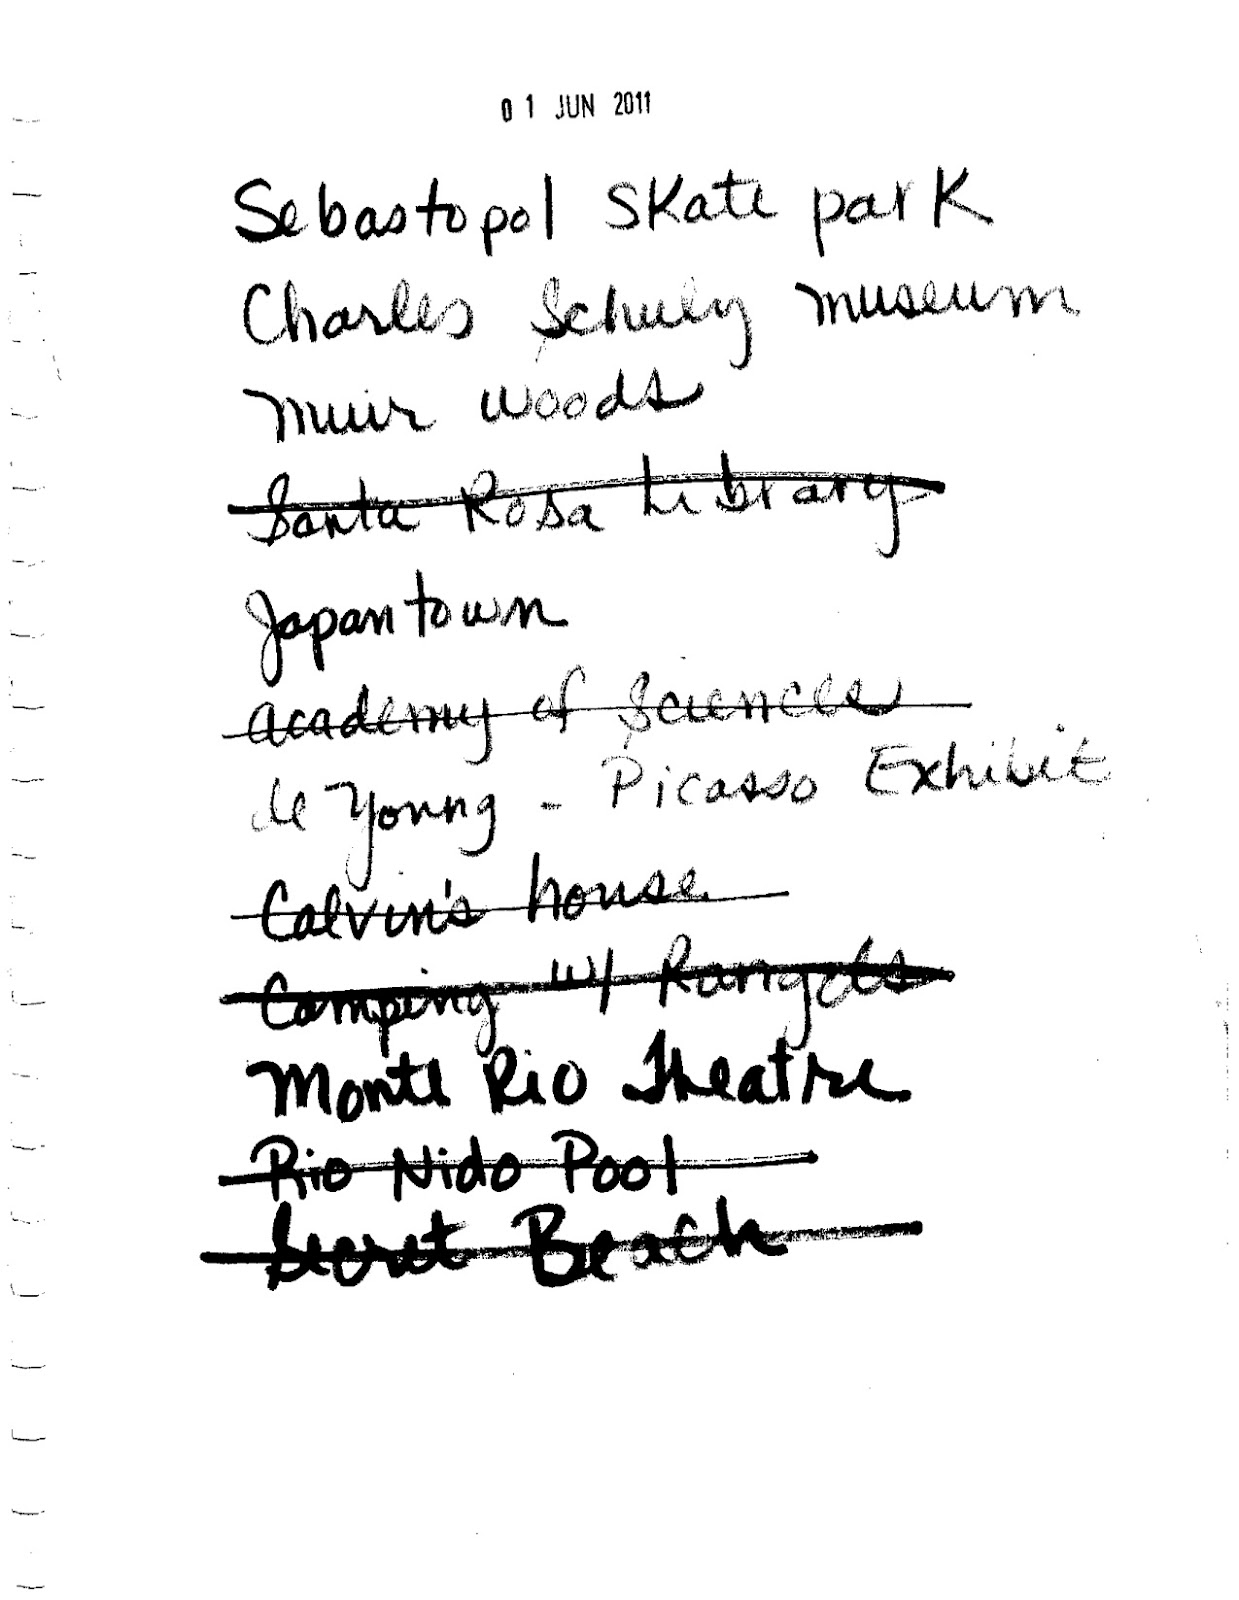 01 JUN 2011
Sebastopol Skate park
Charles Schulz museum
Muir Woods
Santa Rosa Library
Japantown
Academy of Sciences
de Young - Picasso Exhibit
Calvin's house
Camping w/
Monte Rio Theatre
Rio Nido Pool
Secret Beach